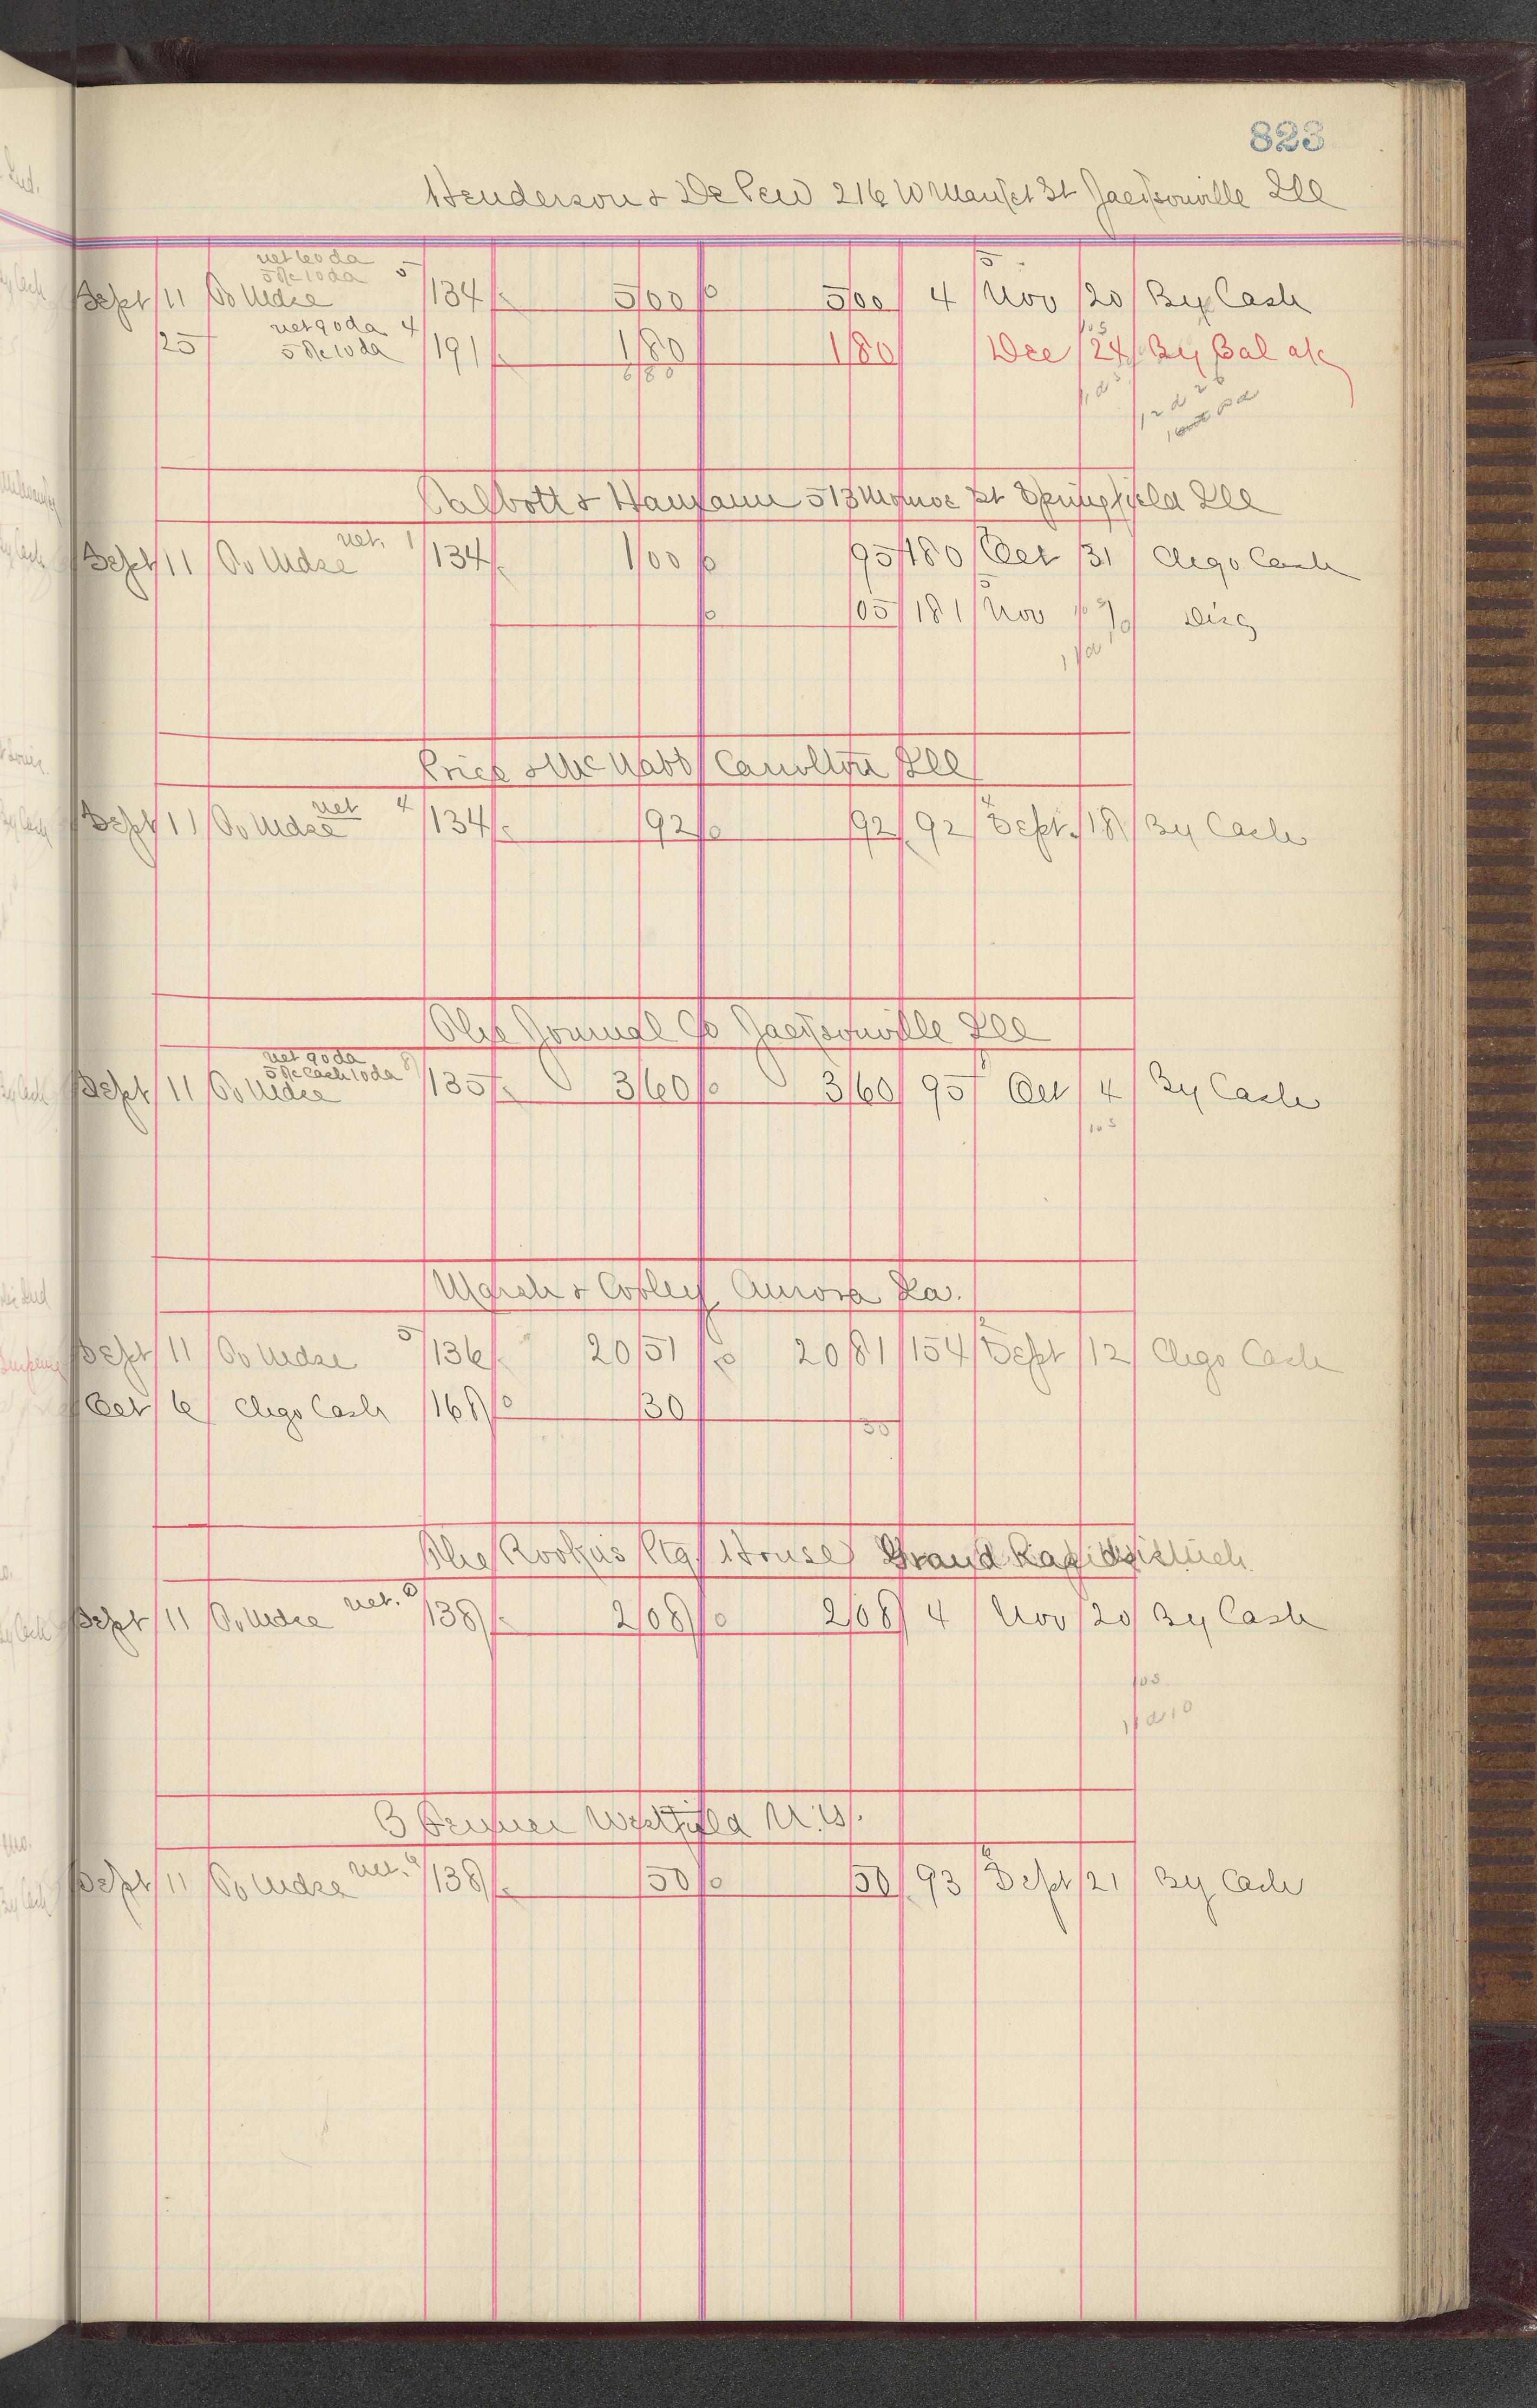 823
Henderson & De Pew 216 W Market St Jacksonville Ill
net 60 da
5% 10 da 5
Sept 11 To Mdse 134 5 00 5 00 4 Nov 20 By Cash
net 90 da 4
25 5% 10 da 191 1 80 1 80 Dec 24 By Bal a/c
6 80
Talbott & Hamann 513 Monroe St Springfield Ill
net. 1
Sept 11 To Mdse 134 1 00 95 180 Oct 31 Chgo Cash
05 181 Nov Disc
Price & McNabb Carrollton Ill
net 4
Sept 11 To Mdse 134 92 92 92 Sept. 18 By Cash
The Journal Co Jacksonville Ill
net 90 da 8
5% Cash 10 da
Sept 11 To Mdse 135 3 60 3 60 95 Oct 4 By Cash
10 3
Marsh & Cooley Aurora Ia.
5
Sept 11 To Mdse 136 20 51 20 81 154 Sept 12 Chgo Cash
Oct 6 Chgo Cash 168 30
30
The Rookus Ptg House Grand Rapids Mich
net. 6
Sept 11 To Mdse 138 2 08 2 08 4 Nov 20 By Cash
103
11 a 10
B Fenner Westfield N.Y.
net. 6
Sept 11 To Mdse 138 50 50 93 Sept 21 By Cash